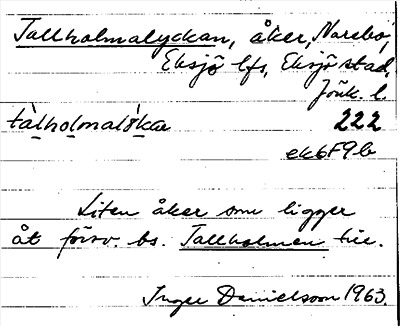 Tallholmalyckan, åker, Narebo,
Eksjö lfs, Eksjö stad,
Jönk. l.
222
ek6F9b
Liten åker som ligger
åt försv. bs. Tallholmen till.
Inger Danielsson 1963.